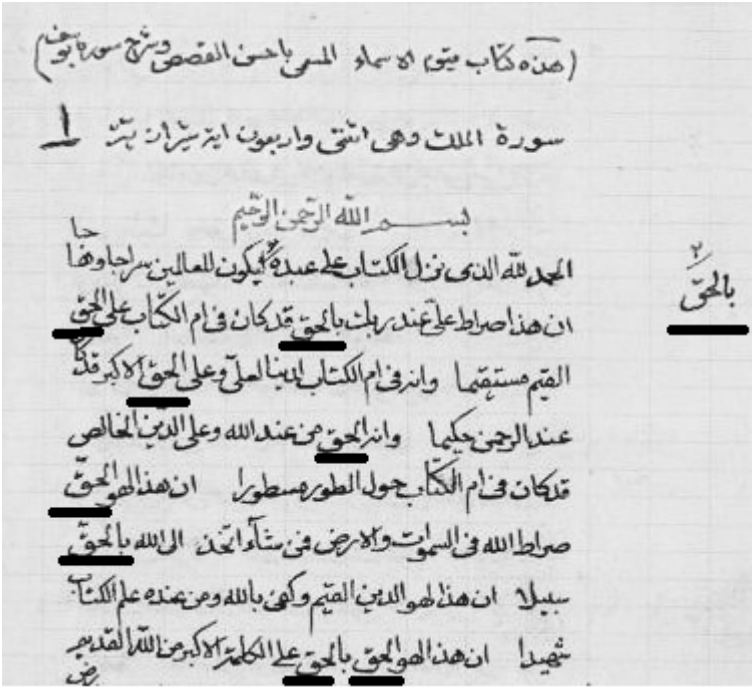 (هذه كتاب قيوم الاسماء المسمى باحسن القصص وشرح سورة يوسف)
سورة الملك وهى اثنتى واربعون اية شيرازية
١
بسم الله الرحمن الرحيم
الحمد لله الذى نزل الكتاب على عبده ٢ ليكون للعالمين سراجا وهاجا
٢
بالحقّ
ان هذا صراط علىّ عند ربك بالحق قد كان فى ام الكتاب على الحق
القيم مستقيما وانه فى ام الكتاب لدينا لعلىّ وعلى الحق الاكبر قد كان
عند الرحمن حكيما وانه الحق من عند الله وعلى الدين الخالص
قد كان فى ام الكتاب حول الطور مسطورا ان هذا لهو الحقّ
صراط الله فى السموات والارض فمن شآء اتخذ الى الله بالحقّ
سبيلا ان هذا لهو الدين القيم وكفى بالله ومن عنده علم الكتاب
شهيدا ان هذا لهو الحق بالحق على الكلمة الاكبر من الله القديم